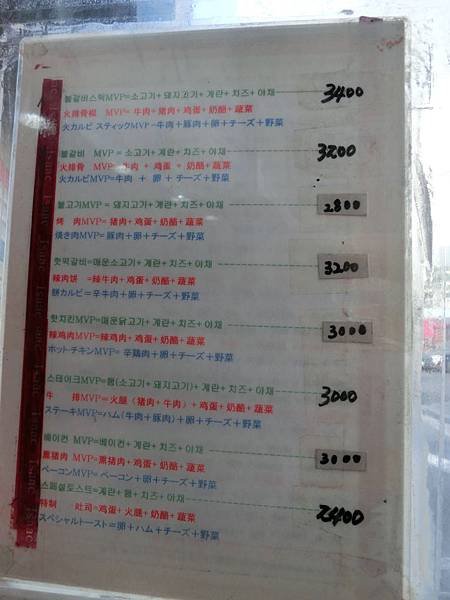 불갈비스틱MVP=소고기+돼지고기+계란+치즈+야채 3400
火排骨棍 MVP=牛肉+猪肉+鸡蛋+奶酪+蔬菜
火カルビ スティックMVP=牛肉+豚肉+卵+チーズ+野菜
불갈비 MVP=소고기+계란+치즈+야채 3200
火排骨 MVP=牛肉+鸡蛋+奶酪+蔬菜
火カルビMVP=牛肉+卵+チーズ+野菜
불고기MVP=돼지고기+계란+치즈+야채 2800
烤 肉MVP=猪肉+鸡蛋+奶酪+蔬菜
焼き肉MVP=豚肉+卵+チーズ+野菜
핫떡갈비=매운소고기+계란+치즈+야채 3200
辣肉饼 =辣牛肉+鸡蛋+奶酪+蔬菜
餅カルビ=辛牛肉+卵+チーズ+野菜
핫치킨MVP=매운닭고기+계란+치즈+야채 3000
辣鸡肉MVP=辣鸡肉+鸡蛋+奶酪+蔬菜
ホットチキンMVP= 辛鶏肉+卵+チーズ+野菜
스테이크MVP=햄(소고기+돼지고기)+계란+치즈+야채 3000
牛 排MVP=火腿(猪肉+牛肉)+鸡蛋+奶酪+蔬菜
ステーキMVP=ハム(牛肉+豚肉)+卵+チーズ+野菜
베이컨 MVP=베이컨+계란+치즈+야채 3000
熏猪肉 MVP=熏猪肉+鸡蛋+奶酪+蔬菜
ベーコンMVP= ベーコン+卵+チーズ+野菜
스페셜토스트=계란+햄+치즈+야채 2400
特制 吐司=鸡蛋+火腿+奶酪+蔬菜
スペシャルトースト=卵+ハム+チーズ+野菜
Isaac Isaac Isaac Isaac Isaac Isaac